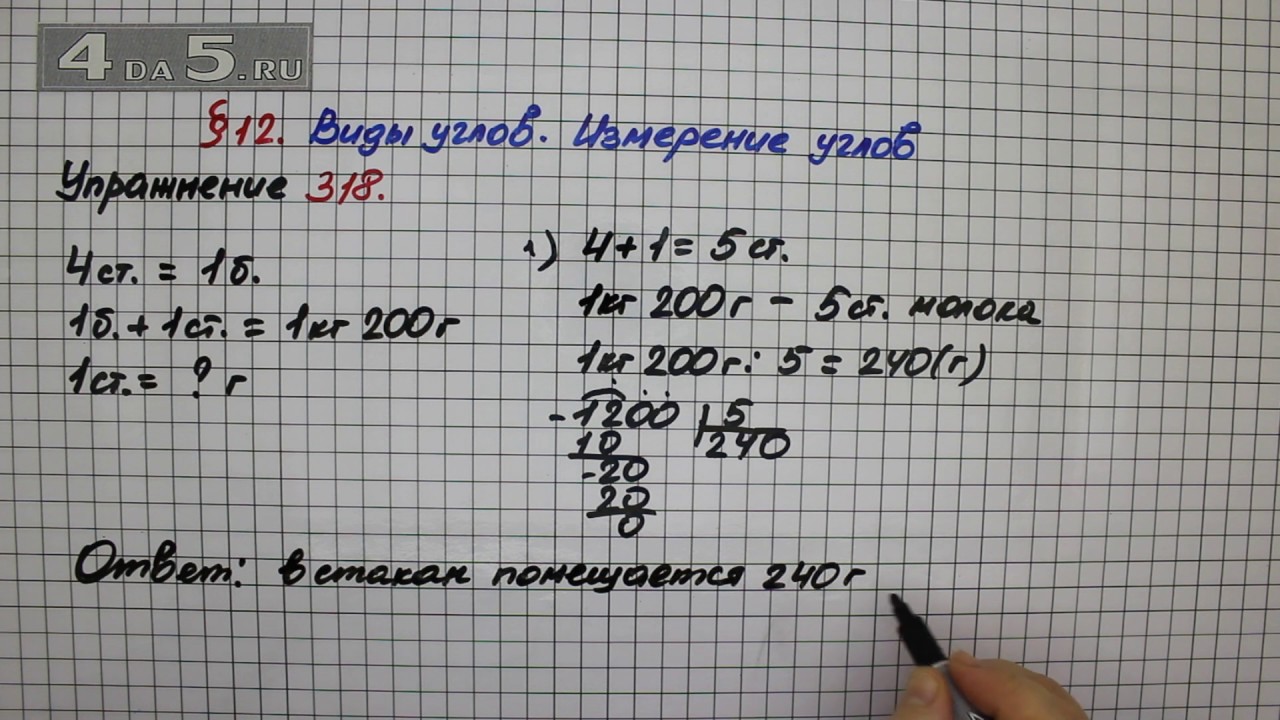 4 DA 5.RU
§12. Виды углов. Измерение углов
Упражнение 318.
4ст. = 1б.
1б. + 1ст. = 1кг 200г
1ст. = ? г
1) 4 + 1 = 5 ст.
1кг 200г - 5ст. молока
1кг 200г : 5 = 240(г)
- 1200 | 5
10 240
- 20
20
0
Ответ: в стакан помещается 240г